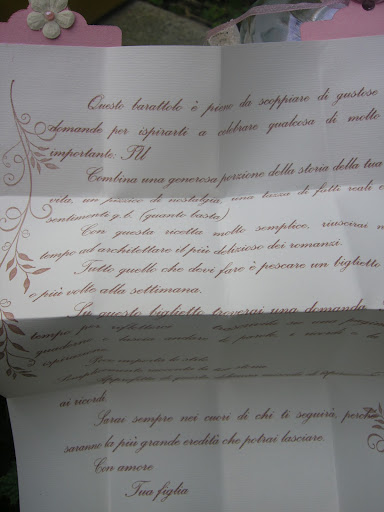 Questo barattolo è pieno da scoppiare di gustose
domande per ispirarti a celebrare qualcosa di molto
importante: TU
Combina una generosa porzione della storia della tua
vita, un pizzico di nostalgia, una tazza di fatti reali e
sentimenti q.b. (quanto basta)
Con questa ricetta molto semplice, riuscirai n
tempo ad architettare il più delizioso dei romanzi.
Tutto quello che devi fare è pescare un biglietto
o più volte alla settimana.
Su questo biglietto troverai una domanda
tempo per riflettere
quaderno e
ai ricordi.
Sarai sempre nei cuori di chi ti seguirà, perchè
saranno la più grande eredità che potrai lasciare.
Con amore
Tua figlia